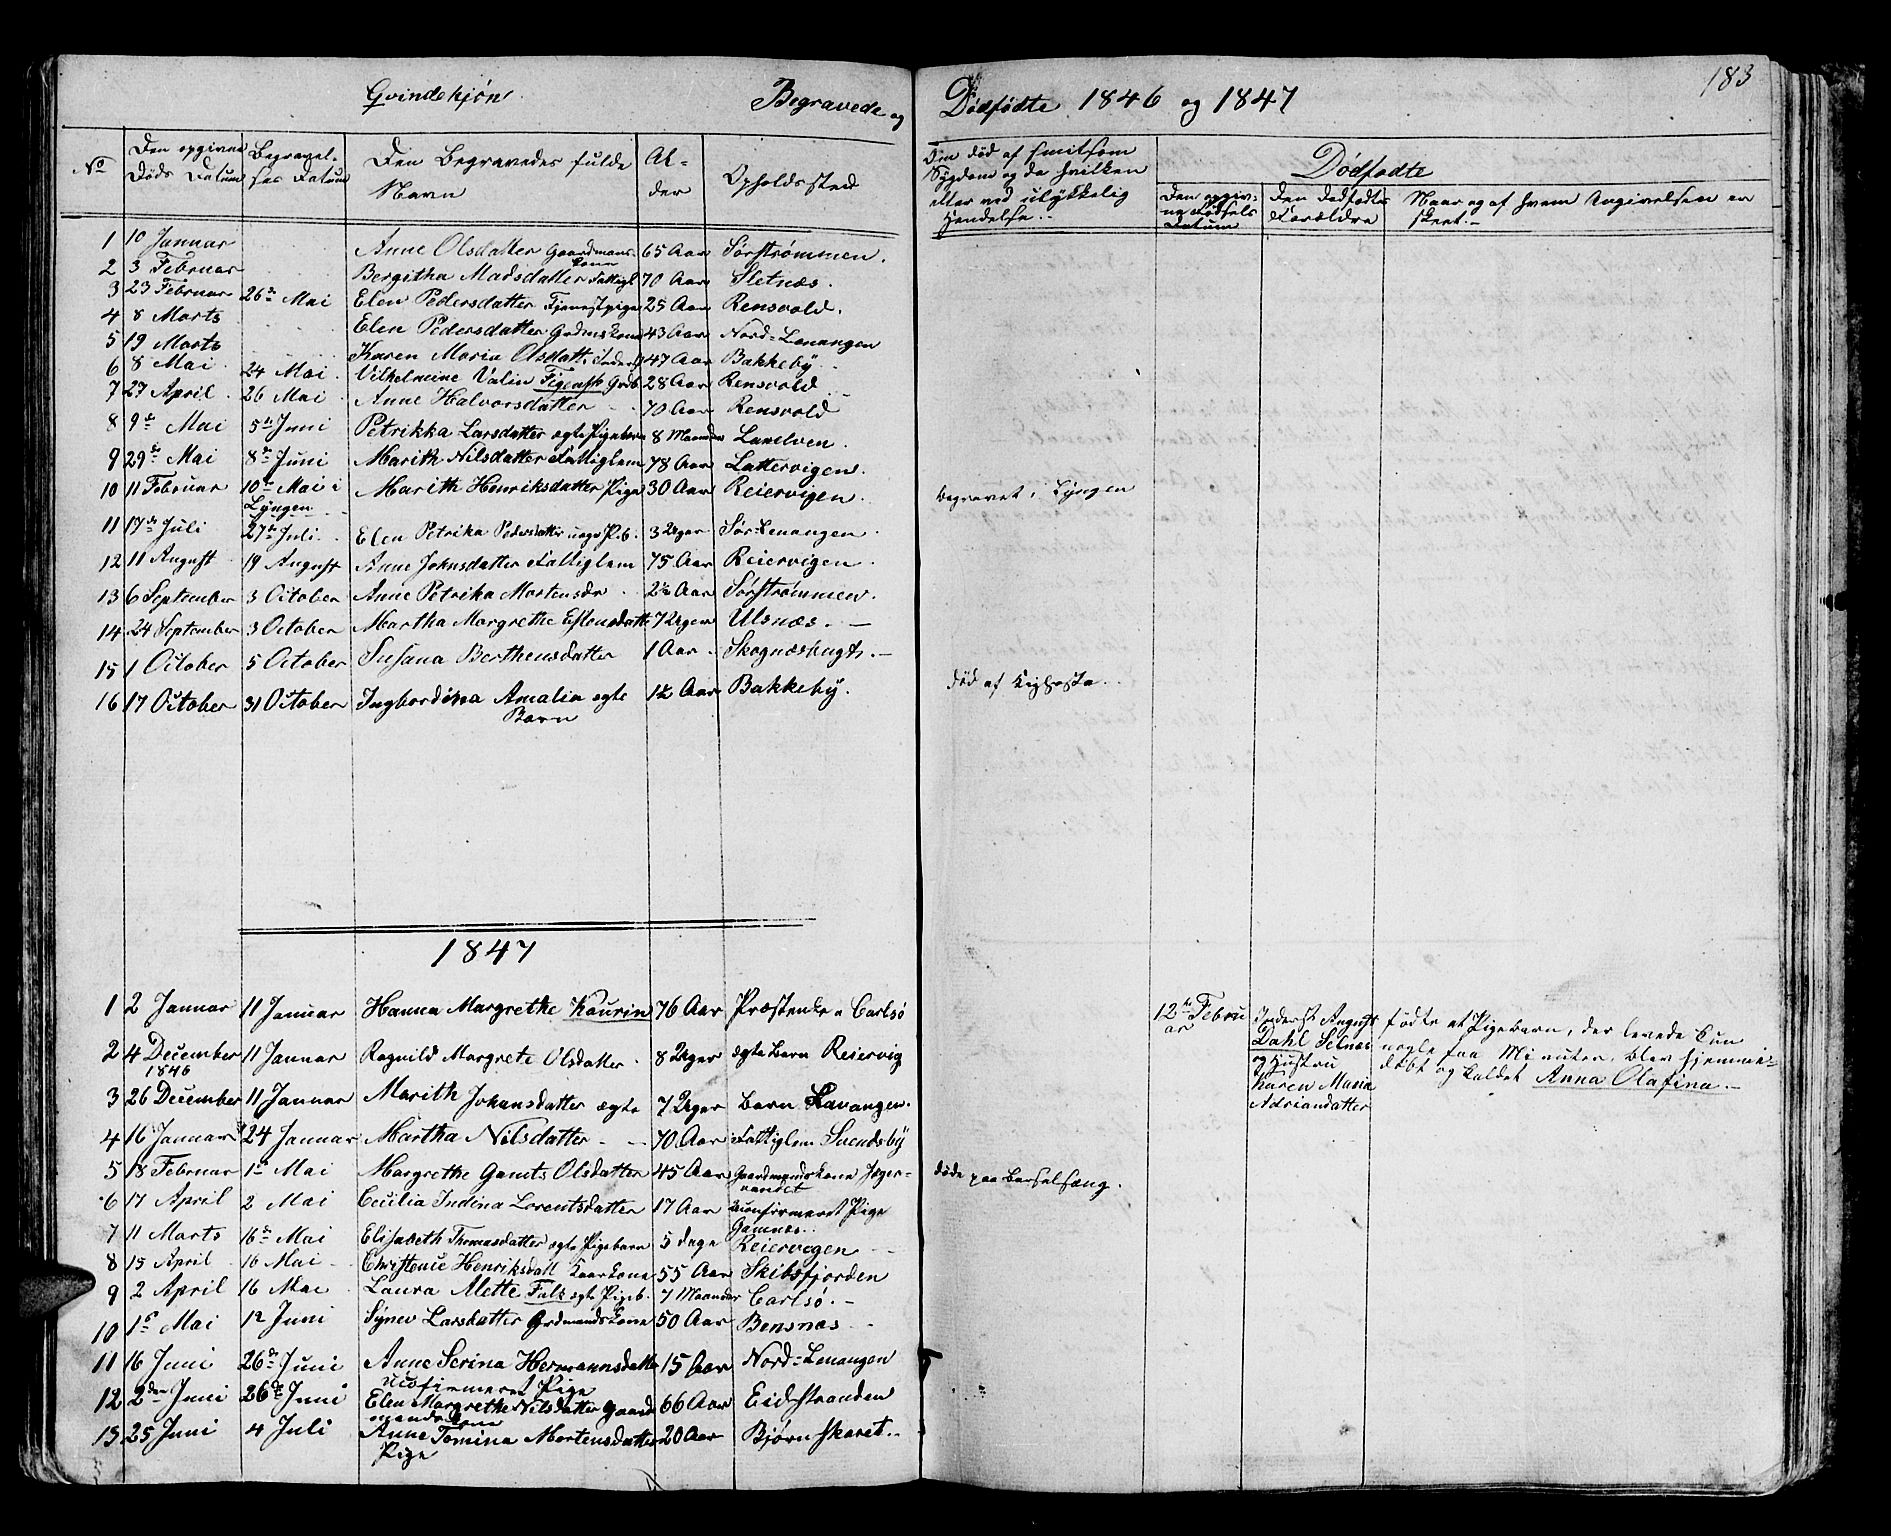 Qvindekjøn Begravede og Dødfødte 1846 og 1847 183
No
Den opgivne Døds Datum
Begravelses Datum
Den Begravedes fulde Navn
Alder
Opholdssted
Den død af smitsom Sygdom og da hvilken eller ved ulykkelig Hendelse.-
Dødfødte
Den opgivne Fødsels Datum
Den dødfødtes Forældre
Naar og af hvem Angivelsen er skeet.-
1 10 Januar Anne Olsdatter Gaardmans kone 65 Aar Sørstrømmen.
2 3 Februar Bergitha Madsdatter Fattigl 70 Aar Sletnæs.
3 23 Februar 26de Mai Elen Pedersdatter Tjenestpige 25 Aar Rensvold.
4 8 Marts Elen Pedersdatter Grdmskone 43 Aar Nord-Lenangen
5 19 Marts Karen Maria Olsdatt. Inders 47 Aar Bakkeby.
6 8 Mai 24 Mai Vilhelmine Valin Figenst Grdb 28 Aar Rensvold
7 27 April 26 Mai Anne Halvorsdatter 70 Aar Rensvold
8 9de Mai 5te Juni Petrikka Larsdatter ægte Pigebarn 8 Maander Lanelven.
9 29de Mai 8de Juni Marith Nilsdatter Fattiglem 78 Aar Lattervigen.
10 11 Februar 10de Mai i Lyngen Marith Henriksdatter Pige 30 Aar Reiervigen. begravet i Lyngen
11 17de Juli 27de Juli. Elen Petrika Pedersdatter uægt P.b. 3 Uger Sør-Lenangen.
12 11 August 19 August Anne Johnsdatter Fattiglem 75 Aar Reiervigen.
13 6 September 3 October Anne Petrika Mortensdr 2½ Aar Sørstrømmen.
14 24 September 3 October Martha Margrethe Estensdatt 7 Uger Ulsnæs.
15 1 October 5 October Susana Berthensdatter 1 Aar Skognæsbugt. død af Kighoste.
16 17 October 31 October Ingbordina Amalia ægte Barn 1½ Aar Bakkeby.
1847
1 2 Januar 11 Januar Hanna Margrethe Kaurin 76 Aar Præstenke Carlsø
2 4 December 1846 11 Januar Ragnild Margrete Olsdatter. 8 Uger ægte Barn Reiervig
3 26 December 11 Januar Marith Johansdatter ægte 7 Uger Barn Lavangen.
4 16 Januar 24 Januar Martha Nilsdatter 70 Aar Fattiglem Svendsby
5 18 Februar 1ste Mai Margrethe Gamts Olsdatter 45 Aar Gaardmandskone Jægervandet døde paa Barselsæng.
6 17 April 2 Mai Cecilia Indina Lorentsdatter 17 Aar uconfirmeret Pige Gamnæs.
7 11 Marts 16de Mai Elisabeth Thomasdatter ægte Pigebarn 5 dage Reiervegen
8 15 April 16 Mai Christense Henriksdatt Kaarkone 55 Aar Skibsfjorden
9 2 April 16 Mai Laura Mette Falk ægte Pigeb. 7 Maander Carlsø.
10 1ste Mai 12 Juni Synev Larsdatter Grdmandskone 50 Aar Bensnæs
11 16 Juni 26de Juni Anne Serina Hermannsdatter ucofirmeret Pige 15 Aar Nord-Lenangen
12 2den Juni 26de Juni Elen Margrethe Nilsdatter Gaardmandskone 66 Aar Eidstranden
13 25 Juni 4 Juli Anne Tomina Mortensdatter Pige 20 Aar Bjørnskaret.
12te Februar
Inderst August Dahl Selnæs og Hustru Karen Maria Adriandatter
fødte et Pigebarn, der levede kun
nogle faa Minuter, blev hjemme-
døbt og kaldet Anna Olafina.-